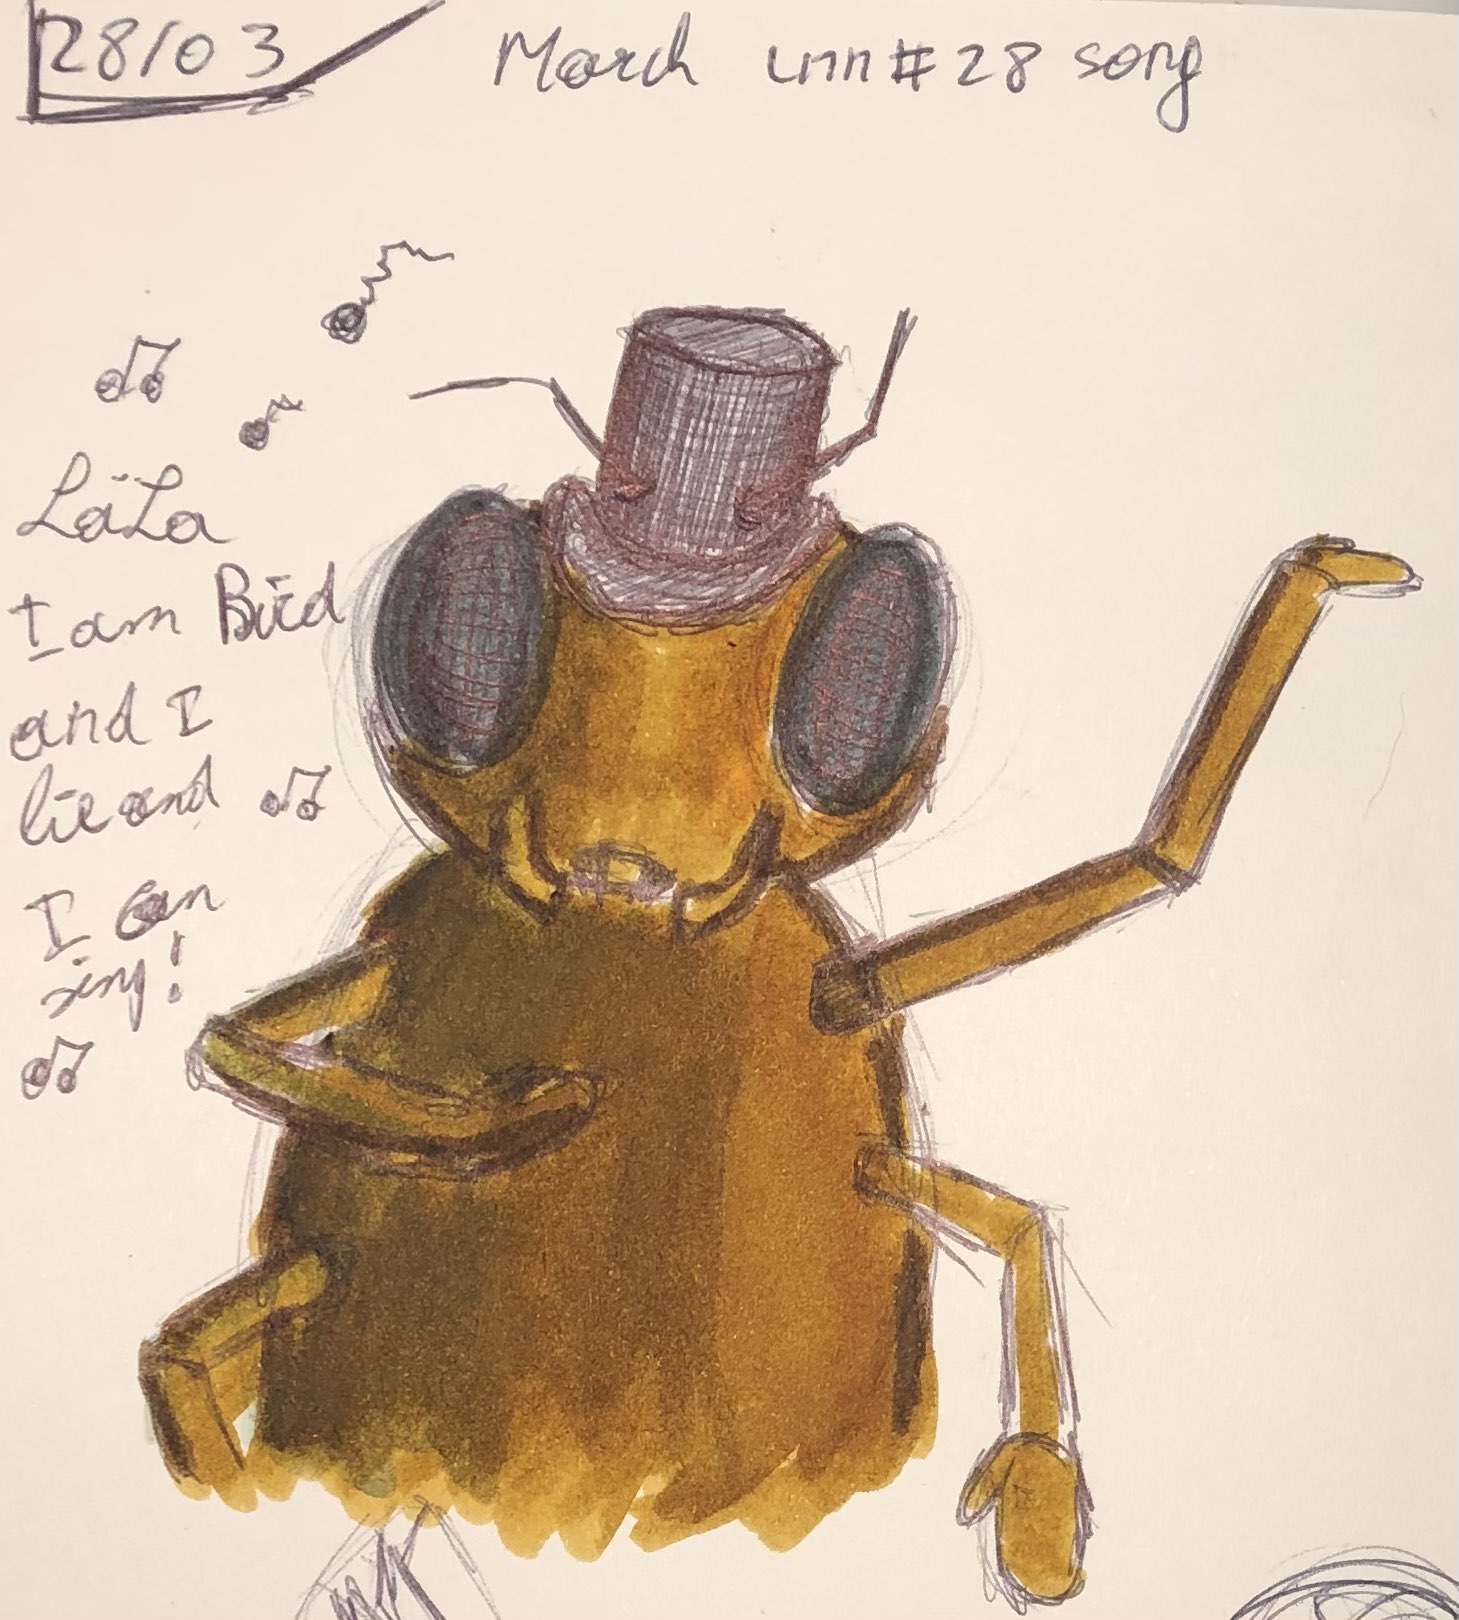 28/03
March unn#28 song
LäLa
I am Bird
and I
lie and
I can
sing!